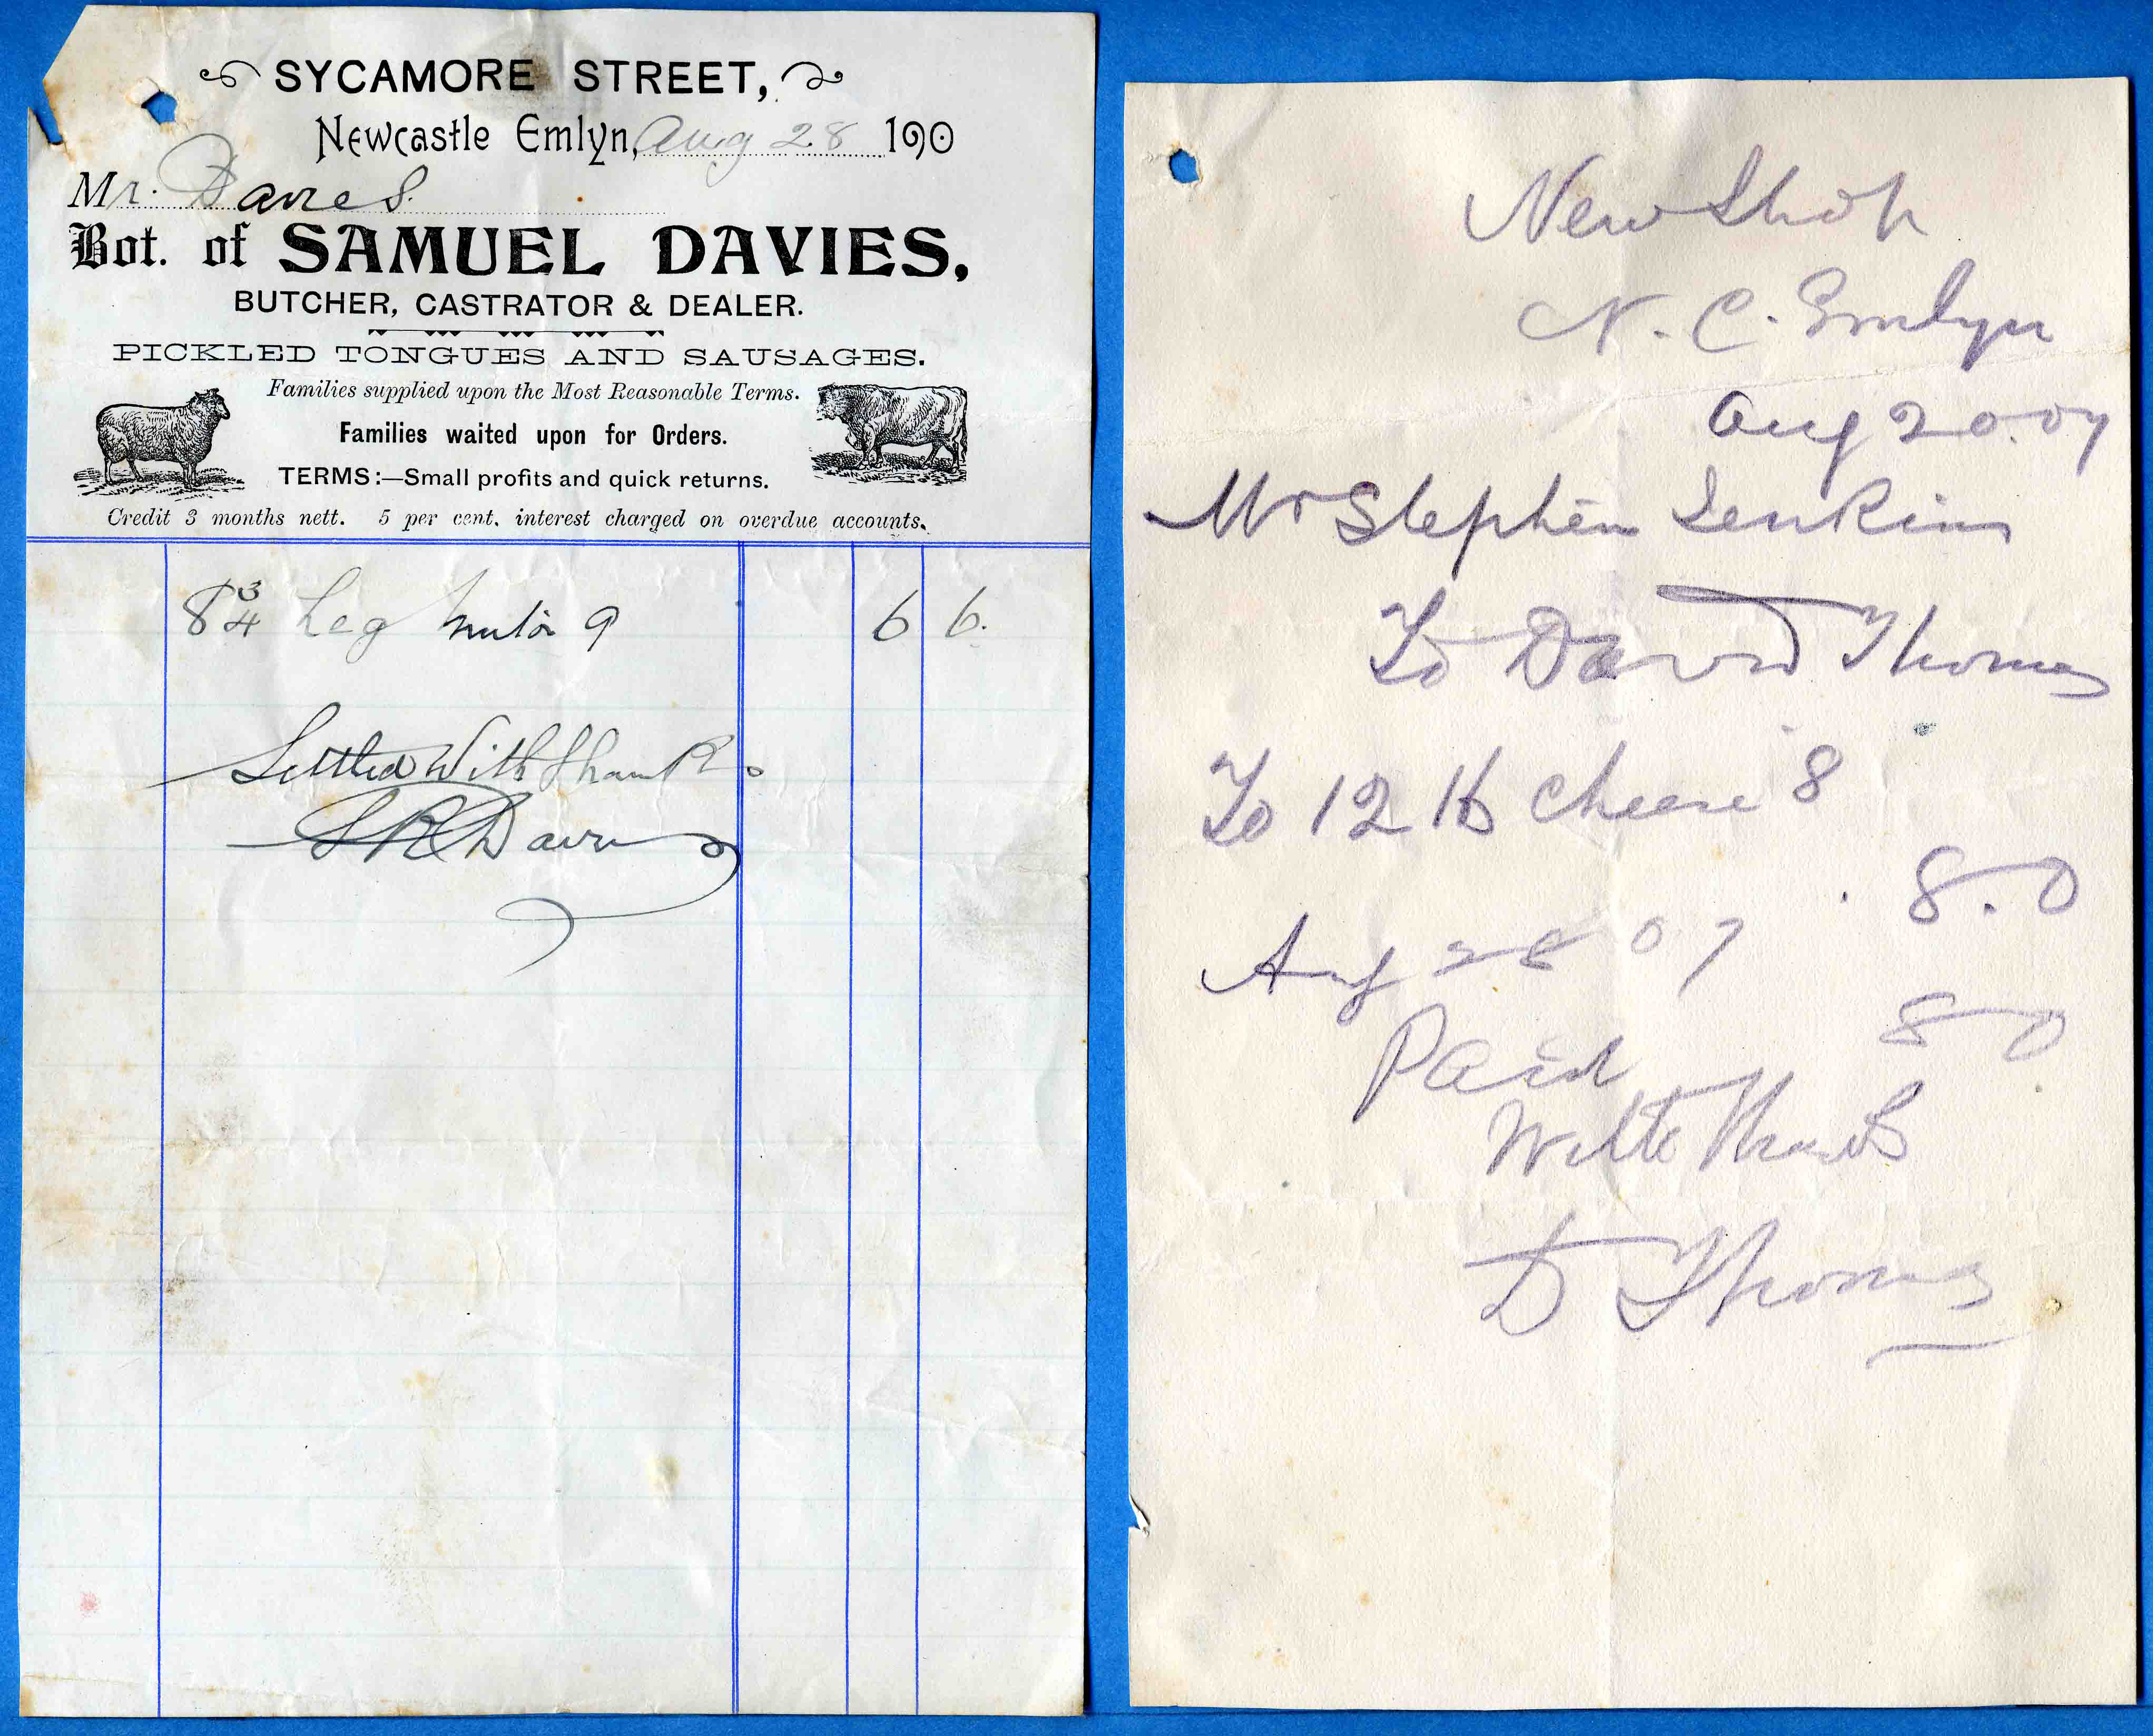 SYCAMORE STREET,
Newcastle Emlyn, Aug 28 190
Mr. Davies.
Bot. of SAMUEL DAVIES,
BUTCHER, CASTRATOR & DEALER.
PICKLED TONGUES AND SAUSAGES.
Families supplied upon the Most Reasonable Terms.
Families waited upon for Orders.
TERMS:—Small profits and quick returns.
Credit 3 months nett. 5 per cent. interest charged on overdue accounts.
8 3/4 Leg 9 6 6.
Settled With Thanks
Davies
New Shop
N. C. Emlyn
Aug 20.07
Mr Stephen Jenkins
To David Thomas
To 12 lb Cheese 8
8.0
Aug 28 07
8 0
Paid
With Thanks
D Thomas